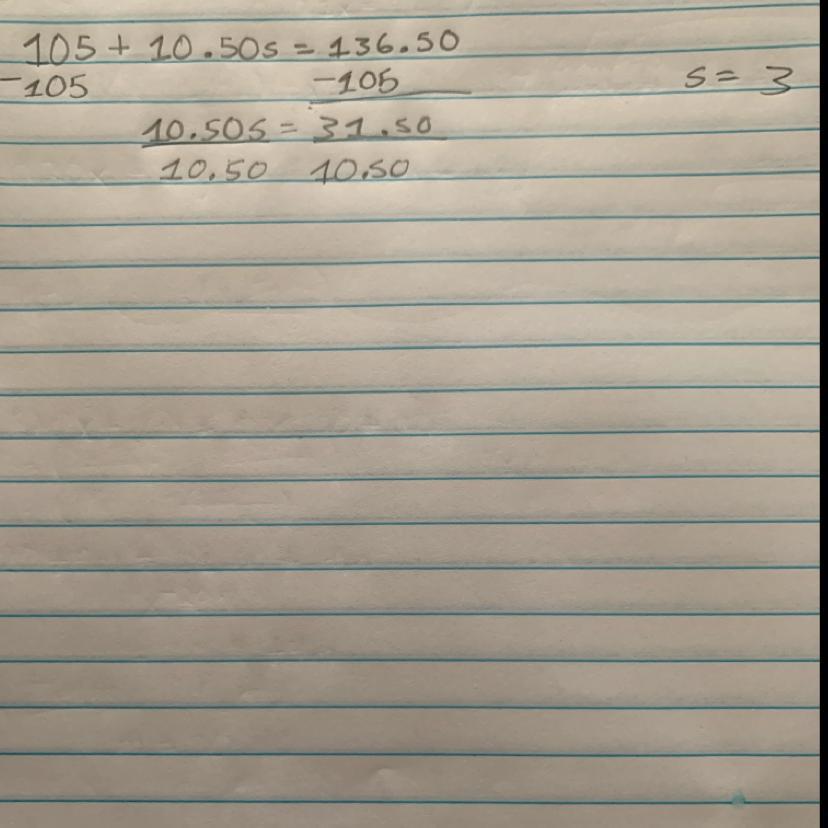 105 + 10.50s = 136.50
-105 -105 s = 3
10.50s = 31.50
10.50 10.50